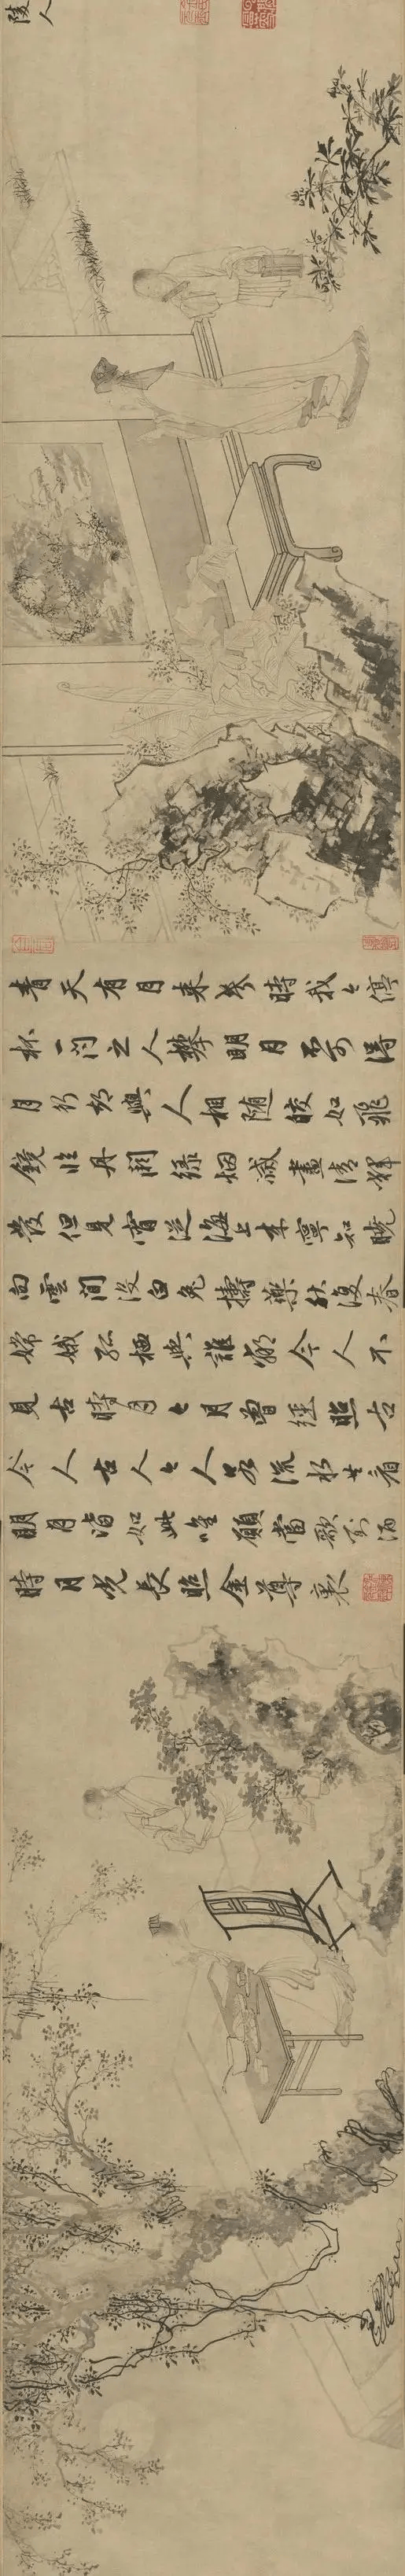 陵人
青天有月來幾時我今停
杯一問之人攀明月不可得
月行却與人相隨皎如飛
鏡臨丹闕綠烟滅盡清輝
發但見宵從海上來寧知曉
向雲間沒白兔擣藥秋復春
嫦娥孤栖與誰鄰今人不
見古時月今月曾經照古
今人古人今人若流水共看
明月皆如此唯願當歌對酒
時月光長照金尊裏